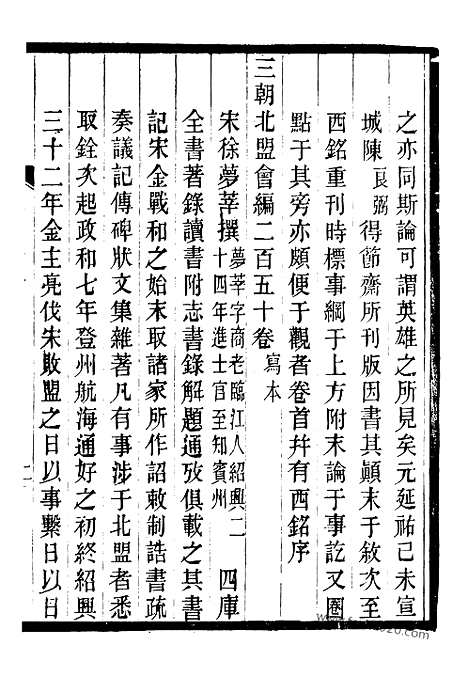 之亦同斯論可謂英雄之所見矣元延祐己未宣
城陳良弼得節齋所刊版因書其顛末于敘次至
西銘重刊時標事綱于上方附末論于事訖又圈
點于其旁亦頗便于觀者卷首幷有西銘序
三朝北盟會編二百五十卷寫本
宋徐夢莘撰夢莘字商老臨江人紹興二十四年進士官至知賓州四庫
全書著錄讀書附志書錄解題通攷俱載之其書
記宋金戰和之始末取諸家所作詔敕制誥書疏
奏議記傳碑狀文集雜著凡有事涉于北盟者悉
取銓次起政和七年登州航海通好之初終紹興
三十二年金主亮伐宋敗盟之日以事繫日以日